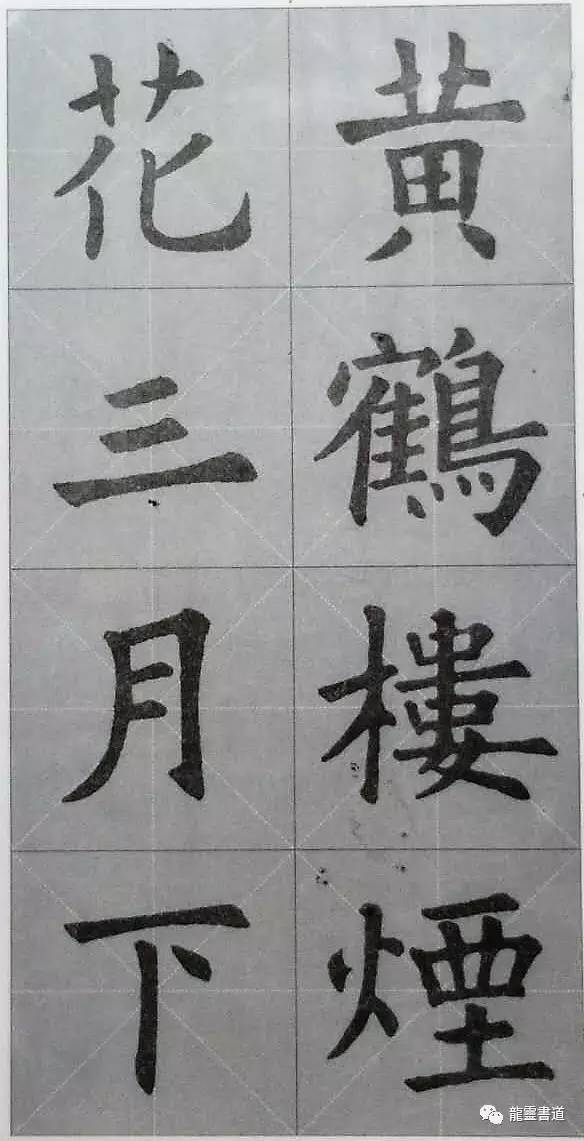 黄鶴樓煙
花三月下
龍靈書道